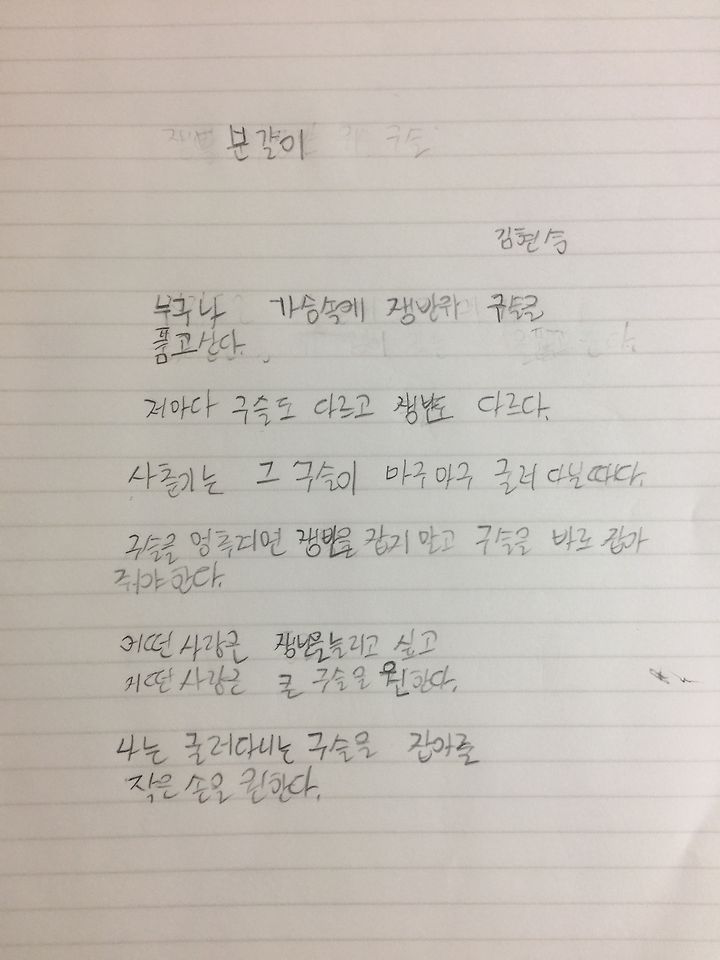 분갈이
김현승
누구나 가슴속에 쟁반과 구슬을
품고산다.
저마다 구슬도 다르고 쟁반도 다르다.
사춘기는 그 구슬이 마구마구 굴러 다닌다.
구슬을 멈추려면 쟁반을 잡지 말고 구슬을 바로 잡아
줘야 한다.
어떤 사람은 쟁반을늘리고 싶고
어떤 사람은 큰 구슬을 원한다.
나는 굴러다니는 구슬을 잡아줄
작은 손을 원한다.